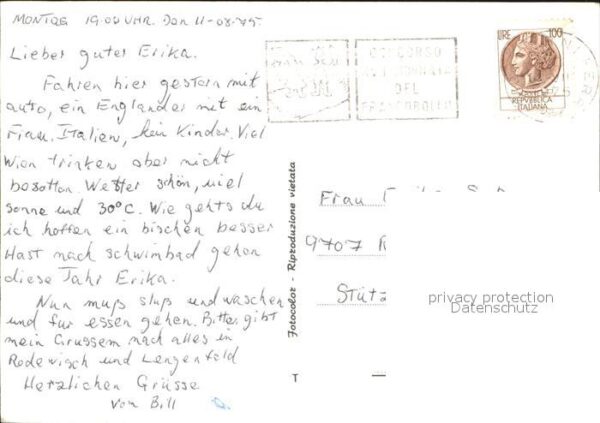 MONTAG 19.00 UHR. Den 11-08-75.
Lieber guter Erika.
Fahren hier gestern mit
auto, ein Englander mit ein
Frau. Italien, kein Kinder. Viel
Wien trinken aber nicht
besoffen. Wetter schön, viel
sonne und 30°C. Wie gehts du
ich hoffen ein bischen besser
Hast nach schwimbad gehen
diese Jahr Erika.
Nun muß sluß und waschen
und fur essen gehen. Bitte, gibt
mein Grussem nach alles in
Rodewisch und Lengenfeld
Herzlichen Grüsse
vom Bill
Fotocolor - Riproduzione vietata
T
CONCORSO
DEL
FRANCOBOLLO
LIRE 100
REPVBBLICA
ITALIANA
Frau
9707
Stütz
privacy protection
Datenschutz